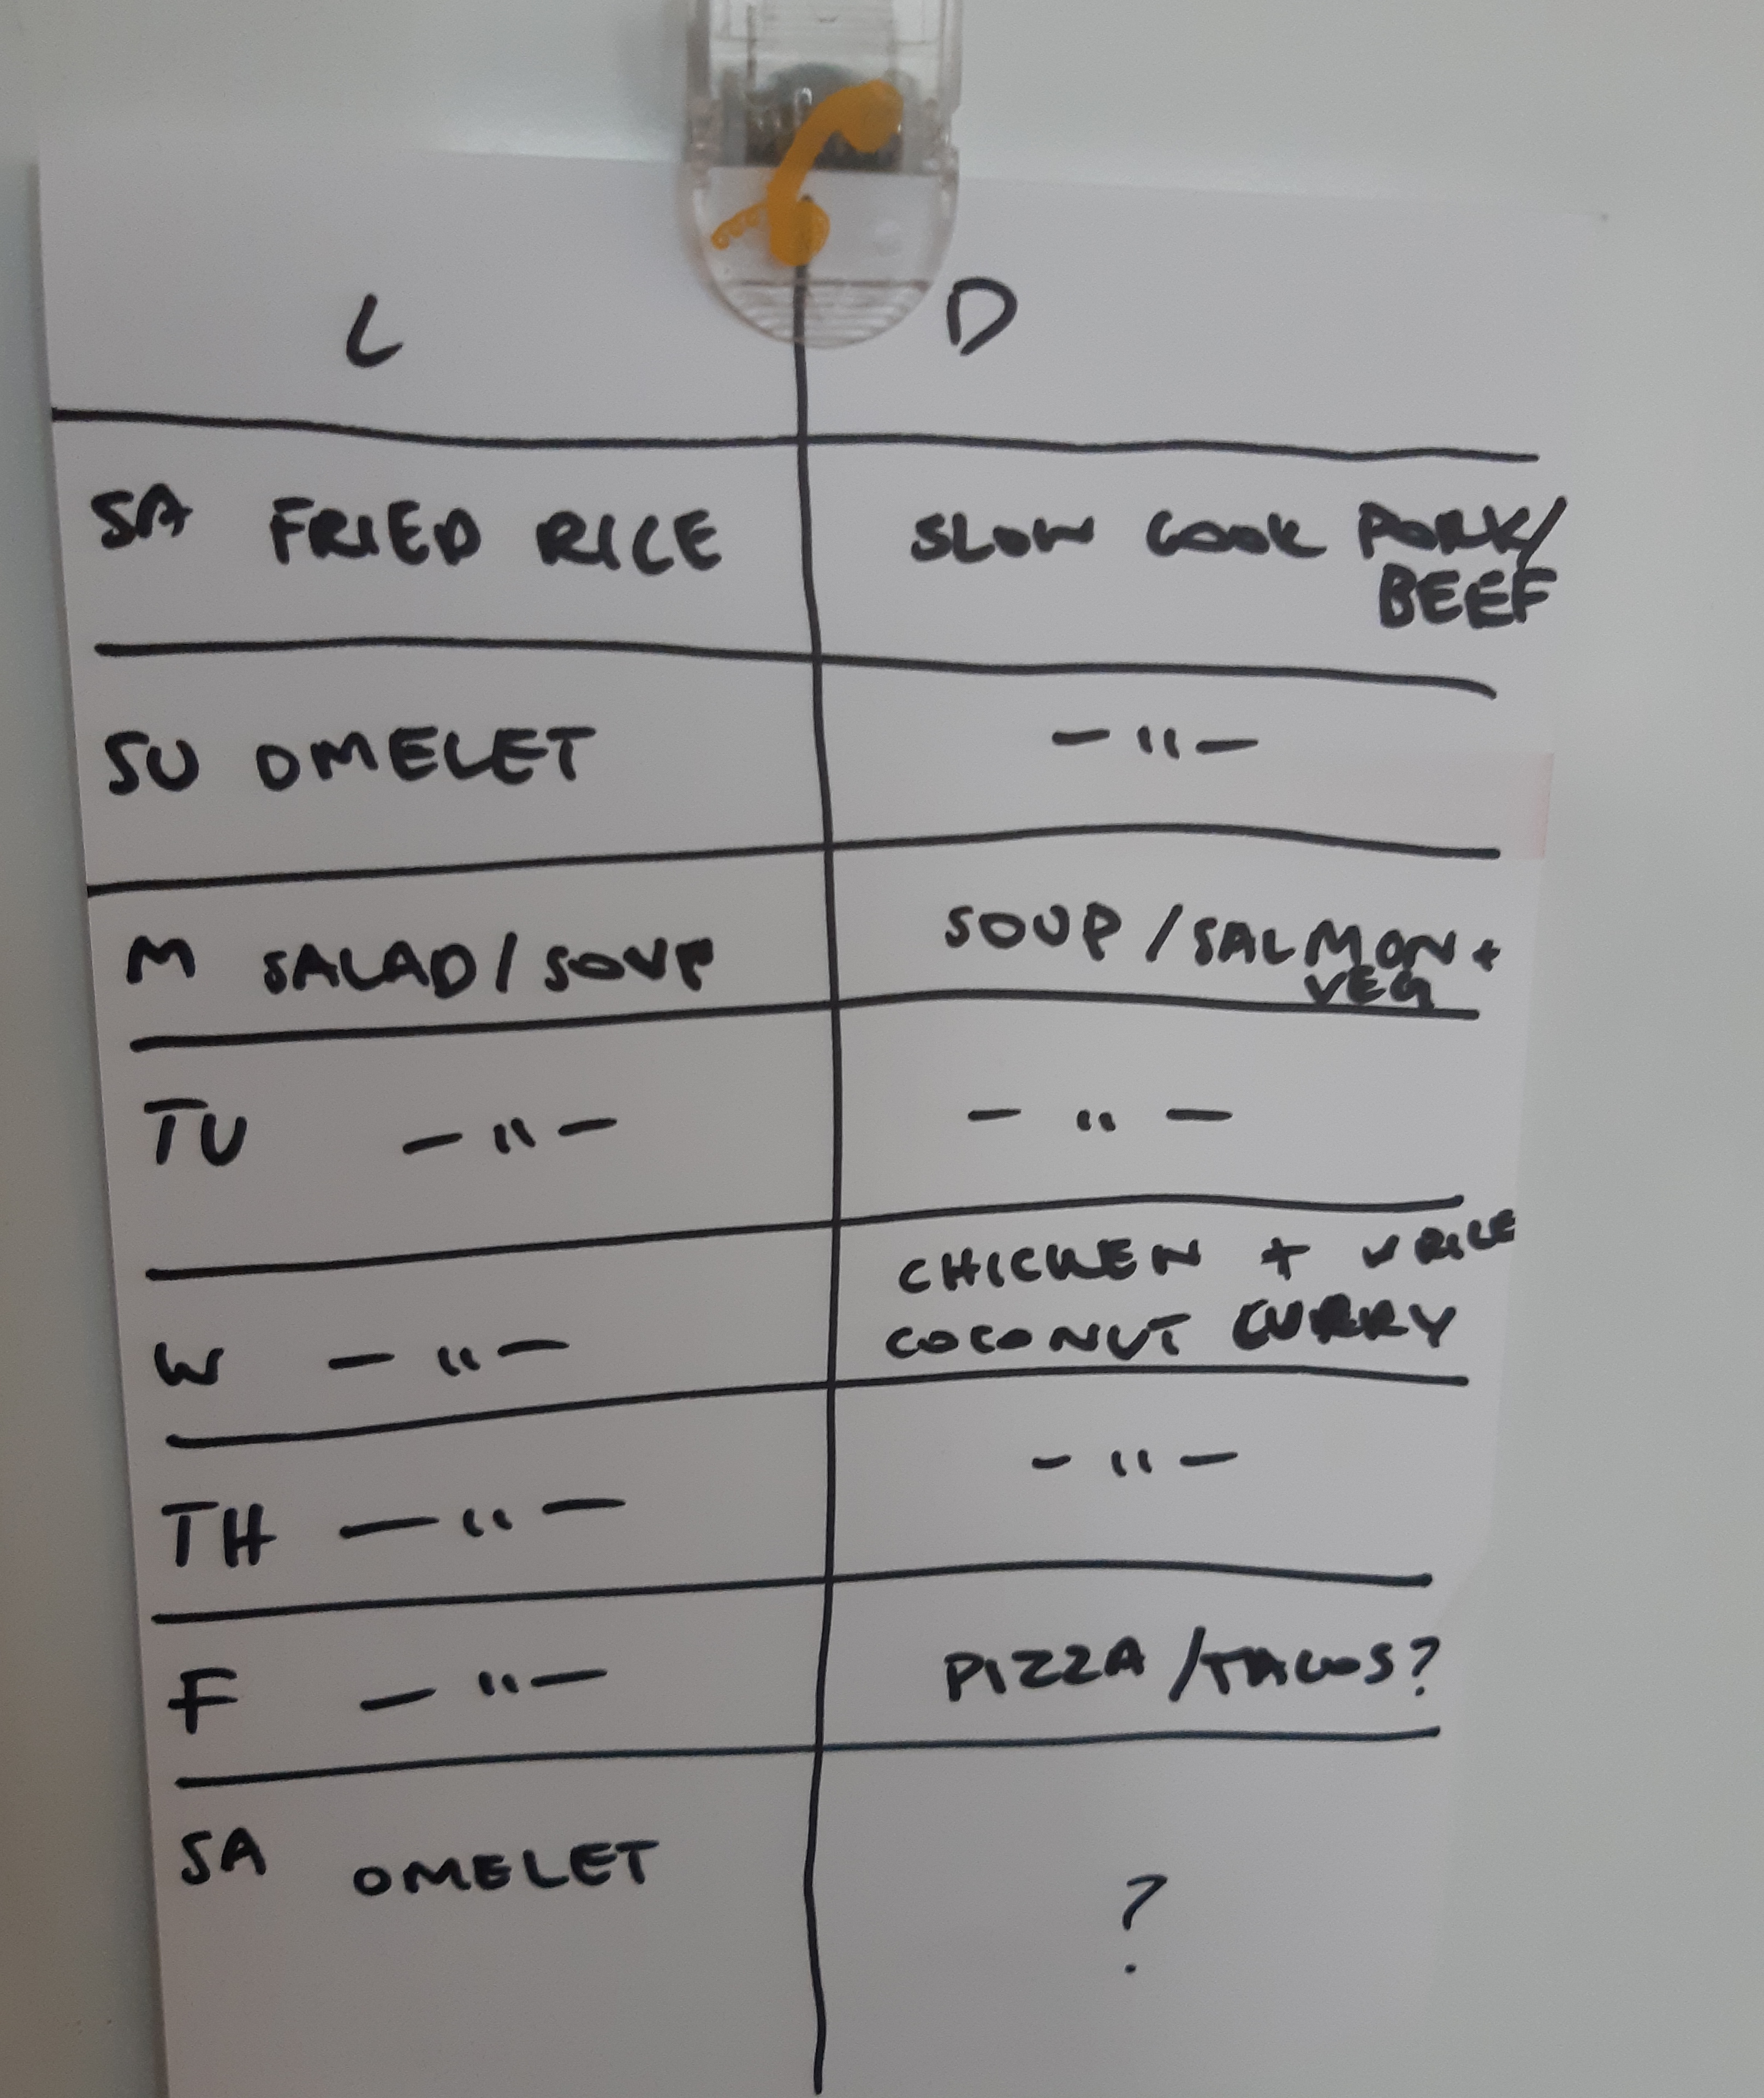 L D
SA FRIED RICE SLOW COOK PORK/
BEEF
SU OMELET -"-
M SALAD/SOUP SOUP/SALMON+
VEG
TU -"- -"-
CHICKEN + RICE
W -"- COCONUT CURRY
TH -"- -"-
F -"- PIZZA/TACOS?
SA OMELET ?